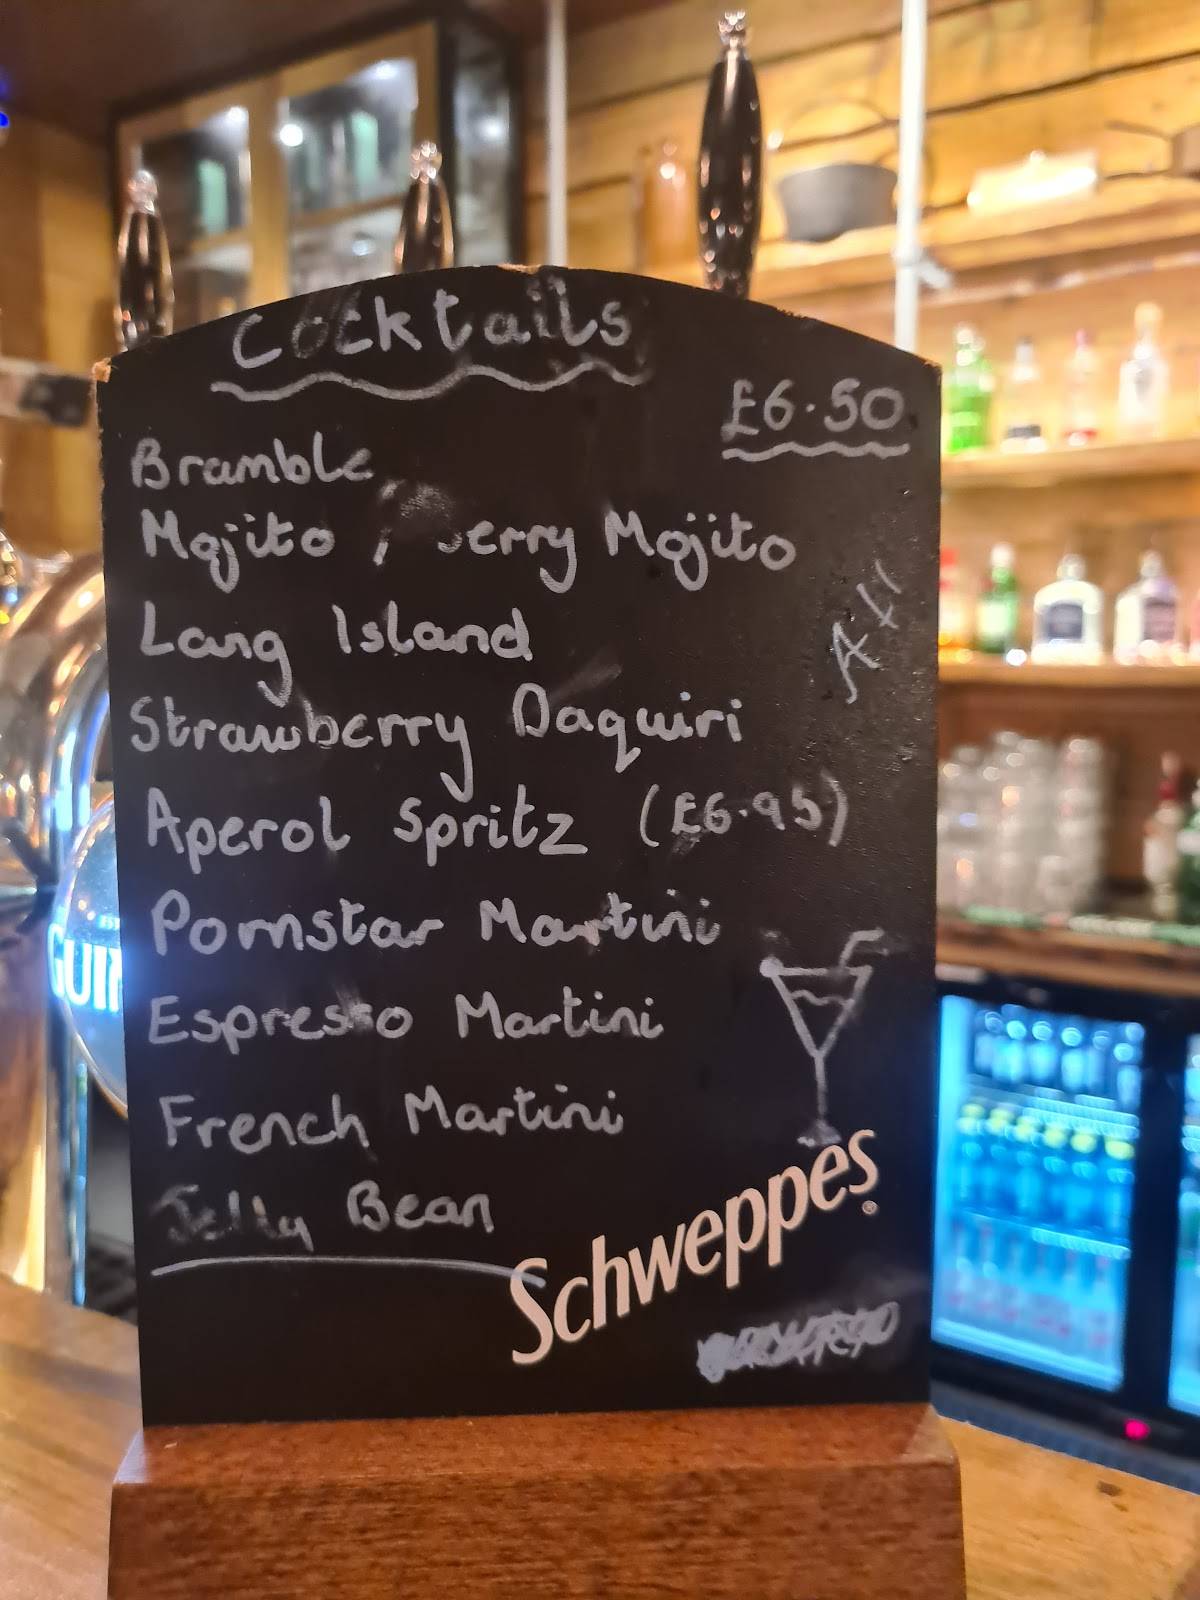 Cocktails
£6.50
Bramble
Mojito / Mojito
All
Long Island
Strawberry Daquiri
Aperol Spritz (£6.95)
Pornstar Martini
Espresso Martini
French Martini
Jelly Bean
Schweppes
GUIN